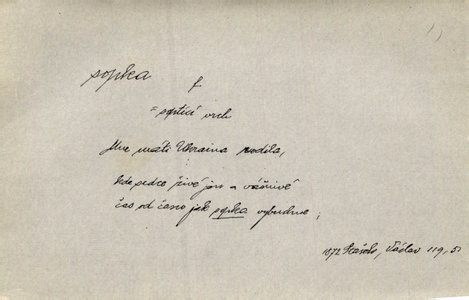 sopka f
= soptící vrch
Mne máti Ukraina rodila,
kde srdce živé jen a vášnivě
čas od času jak sopka vybuchne;
1872 Václav 119, 5